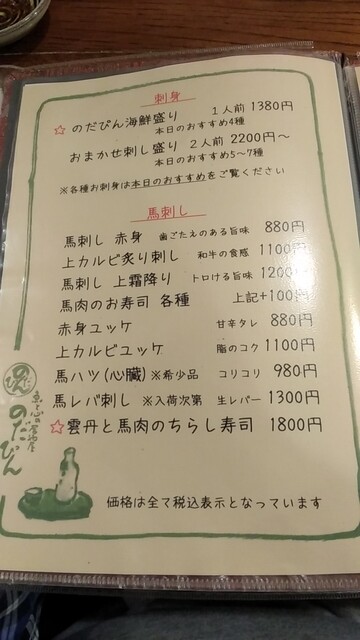 刺身
☆ のだぴん海鮮盛り 1人前 1380円
本日のおすすめ4種
おまかせ刺し盛り 2人前 2200円~
本日のおすすめ5~7種
※各種お刺身は本日のおすすめをご覧ください
馬刺し
馬刺し 赤身 歯ごたえのある旨味 880円
上カルビ炙り刺し 和牛の食感 1100円
馬刺し 上霜降り トロける旨味 1200円
馬肉のお寿司 各種 上記+100円
赤身ユッケ 甘辛タレ 880円
上カルビユッケ 脂のコク 1100円
馬ハツ(心臓) ※希少品 コリコリ 980円
馬レバ刺し ※入荷次第 生レバー 1300円
☆雲丹と馬肉のちらし寿司 1800円
のだぴん
価格は全て税込表示となっています